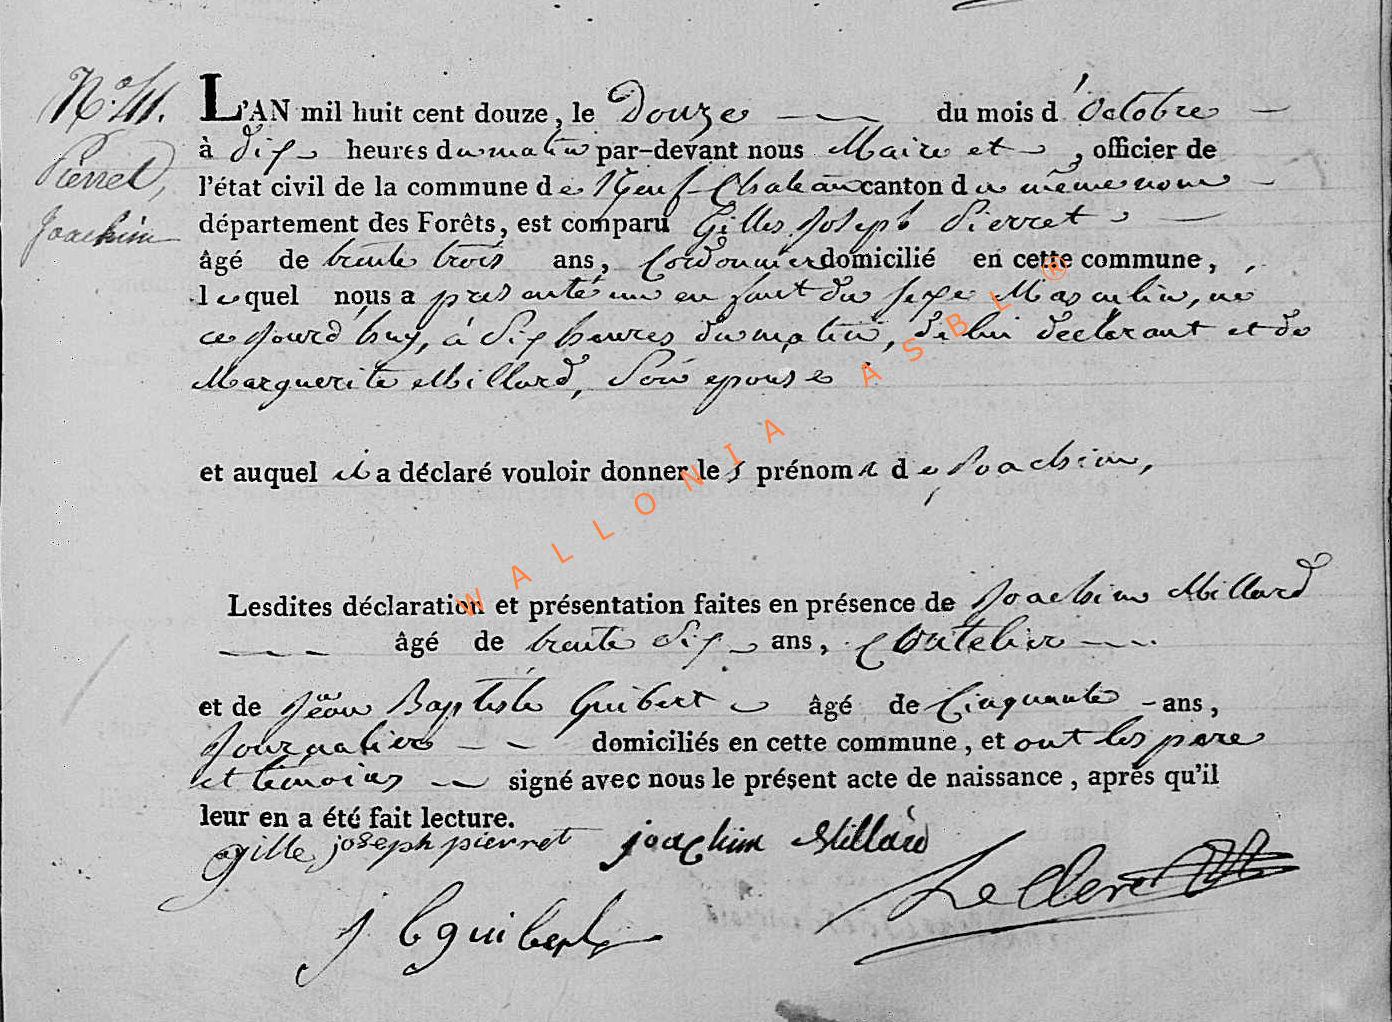 N.° 41.
Pierret,
Joachim
L'AN mil huit cent douze, le Douze du mois d'octobre
à dix heures du matin par-devant nous Maire et , officier de
l'état civil de la commune de Neuf-Chateau canton du même nom
département des Forêts, est comparu Gilles Joseph Pierret
âgé de trente trois ans, Cordonnier domicilié en cette commune,
lequel nous a presenté un enfant du sexe Masculin, né
ce jourd'huy, à six heures du matin, de lui declarant et de
Marguerite Millard, Son epouse
et auquel il a déclaré vouloir donner les prénoms de Joachim,
Lesdites déclaration et présentation faites en présence de Joachim Millard
âgé de trente six ans, Coutelier
et de Jean Baptiste Guibert âgé de Cinquante ans,
Journalier domiciliés en cette commune, et ont les pere
et témoins signé avec nous le présent acte de naissance, après qu'il
leur en a été fait lecture.
gille joseph pierret joachim Millard
J b guibert
LeClerc
WALLONIA ASBL ®